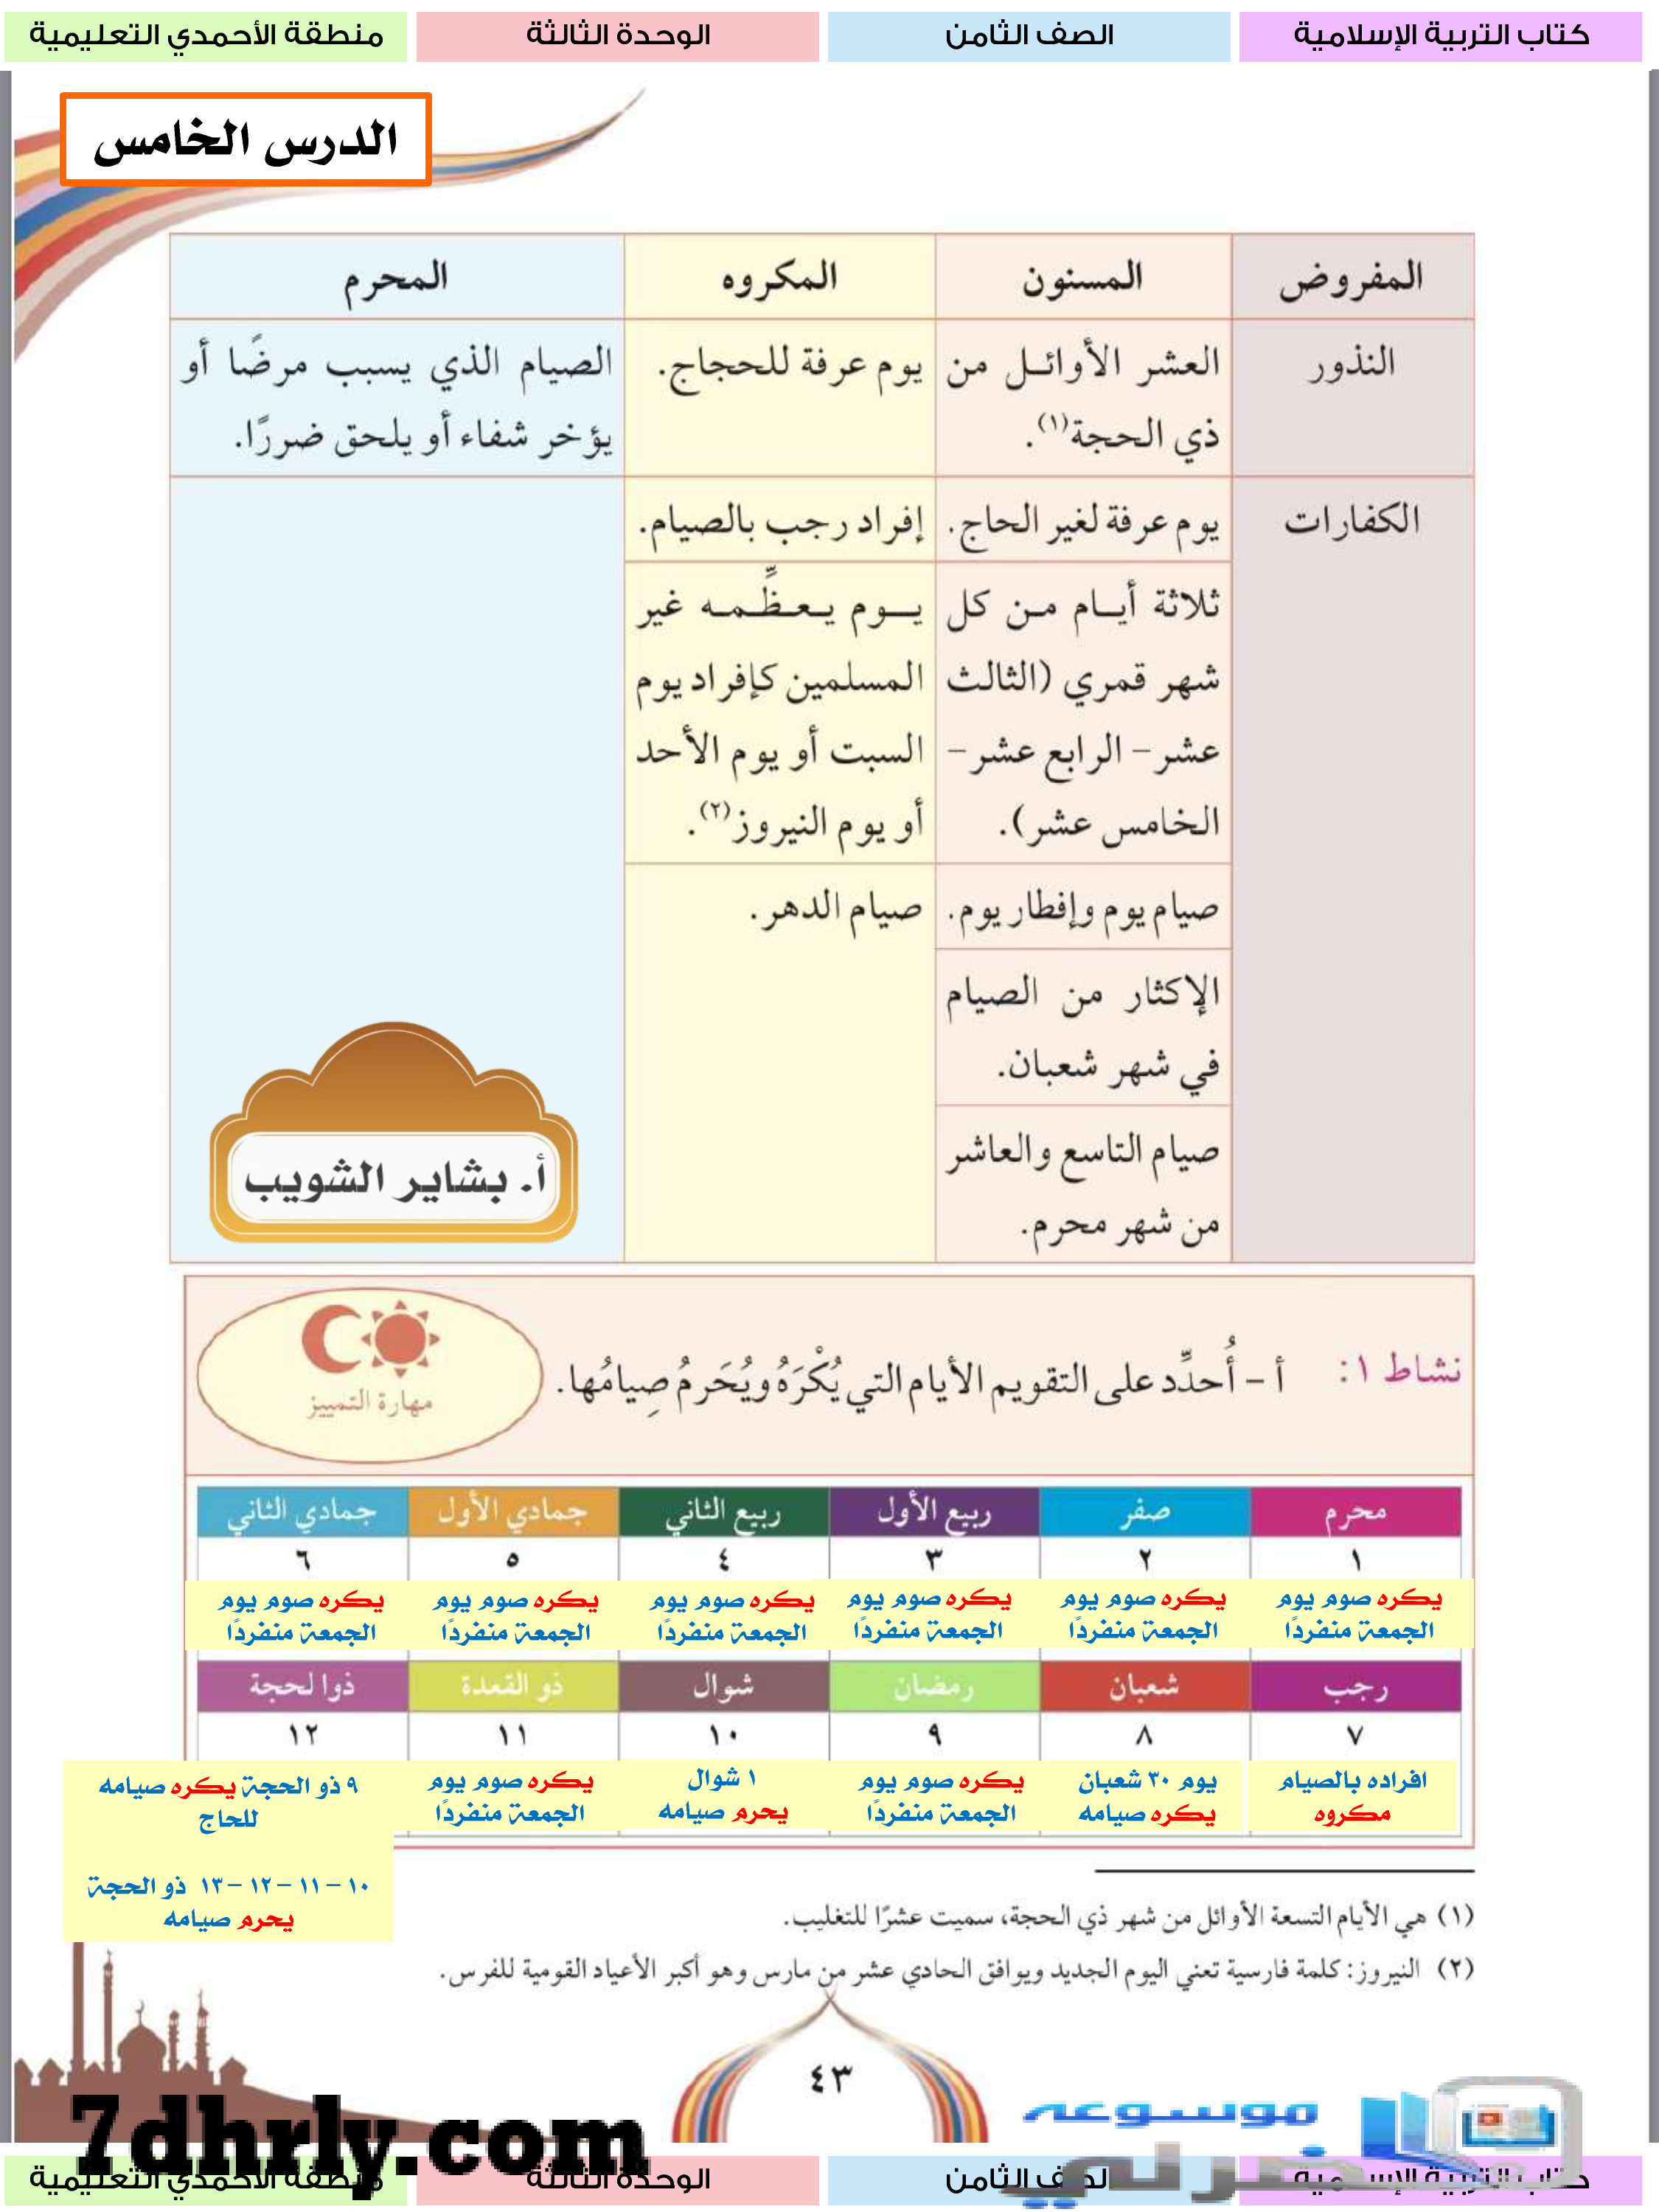 كتاب التربية الإسلامية
الصف الثامن
الوحدة الثالثة
منطقة الأحمدي التعليمية
الدرس الخامس
المفروض
المسنون
المكروه
المحرم
النذور
العشر الأوائل من
ذي الحجة(١).
يوم عرفة للحجاج.
الصيام الذي يسبب مرضًا أو
يؤخر شفاء أو يلحق ضررًا.
الكفارات
يوم عرفة لغير الحاج.
إفراد رجب بالصيام.
ثلاثة أيام من كل
شهر قمري (الثالث
عشر – الرابع عشر –
الخامس عشر).
يوم يعظِّمه غير
المسلمين كإفراد يوم
السبت أو يوم الأحد
أو يوم النيروز(٢).
صيام يوم وإفطار يوم.
صيام الدهر.
الإكثار من الصيام
في شهر شعبان.
صيام التاسع والعاشر
من شهر محرم.
أ. بشاير الشويب
نشاط ١: أ – أُحدِّد على التقويم الأيام التي يُكْرَهُ ويُحَرمُ صِيامُها.
مهارة التمييز
محرم
صفر
ربيع الأول
ربيع الثاني
جمادي الأول
جمادي الثاني
١
٢
٣
٤
٥
٦
يكره صوم يوم
الجمعة منفردًا
يكره صوم يوم
الجمعة منفردًا
يكره صوم يوم
الجمعة منفردًا
يكره صوم يوم
الجمعة منفردًا
يكره صوم يوم
الجمعة منفردًا
يكره صوم يوم
الجمعة منفردًا
رجب
شعبان
رمضان
شوال
ذو القعدة
ذوا لحجة
٧
٨
٩
١٠
١١
١٢
افراده بالصيام
مكروه
يوم ٣٠ شعبان
يكره صيامه
يكره صوم يوم
الجمعة منفردًا
١ شوال
يحرم صيامه
يكره صوم يوم
الجمعة منفردًا
٩ ذو الحجة يكره صيامه
للحاج
١٠ – ١١ – ١٢ – ١٣ ذو الحجة
يحرم صيامه
(١) هي الأيام التسعة الأوائل من شهر ذي الحجة، سميت عشرًا للتغليب.
(٢) النيروز: كلمة فارسية تعني اليوم الجديد ويوافق الحادي عشر من مارس وهو أكبر الأعياد القومية للفرس.
٤٣
7dhrly.com
موسوعة
حضرلي
كتاب التربية الإسلامية
الصف الثامن
الوحدة الثالثة
منطقة الأحمدي التعليمية